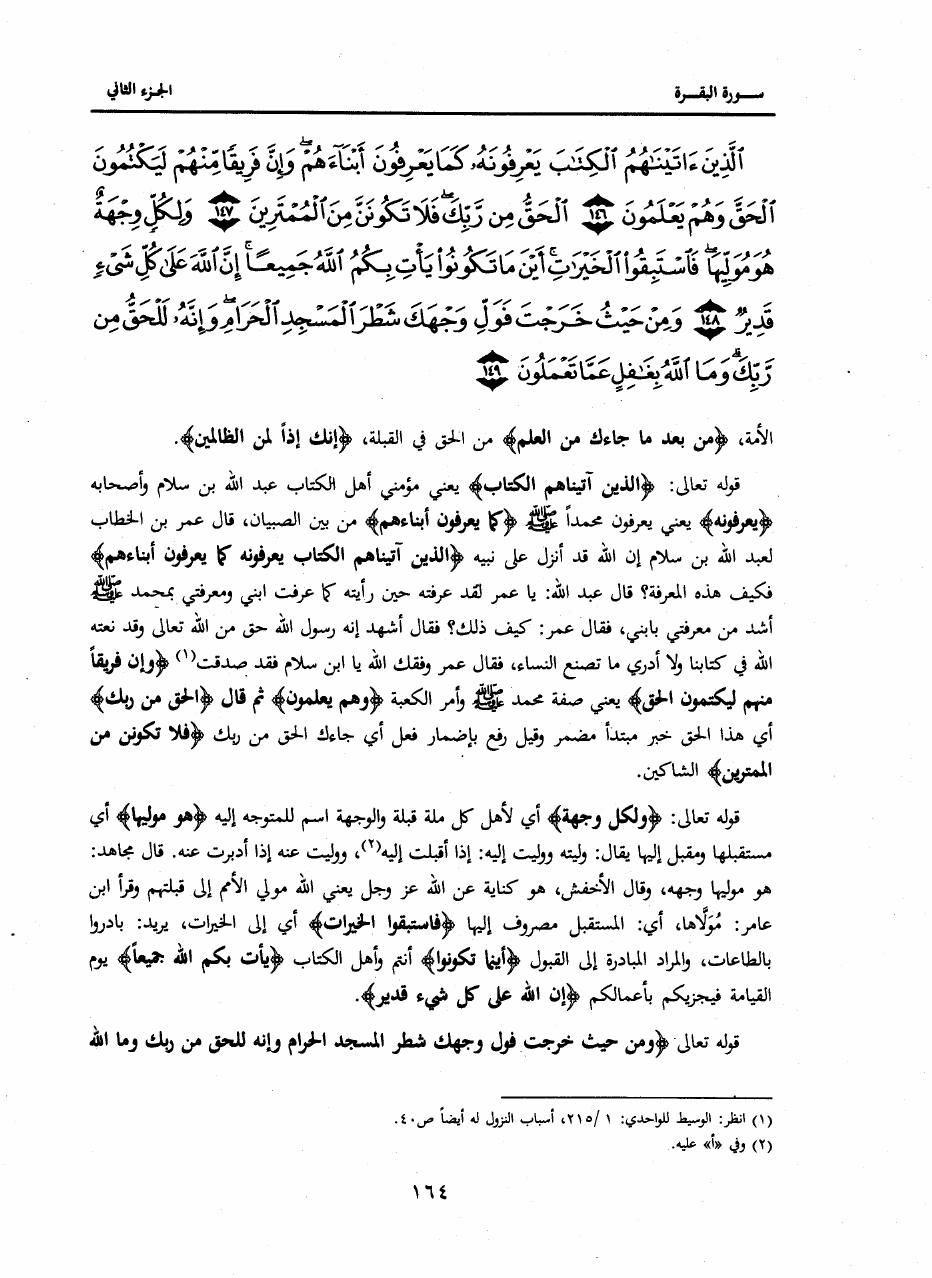 سـورة البقـرة
الجزء الثاني
ٱلَّذِينَ ءَاتَيْنَٰهُمُ ٱلْكِتَٰبَ يَعْرِفُونَهُۥ كَمَا يَعْرِفُونَ أَبْنَآءَهُمْ ۖ وَإِنَّ فَرِيقًا مِّنْهُمْ لَيَكْتُمُونَ
ٱلْحَقَّ وَهُمْ يَعْلَمُونَ ١٤٦ ٱلْحَقُّ مِن رَّبِّكَ ۖ فَلَا تَكُونَنَّ مِنَ ٱلْمُمْتَرِينَ ١٤٧ وَلِكُلٍّ وِجْهَةٌ
هُوَ مُوَلِّيهَا ۖ فَٱسْتَبِقُوا۟ ٱلْخَيْرَٰتِ ۚ أَيْنَ مَا تَكُونُوا۟ يَأْتِ بِكُمُ ٱللَّهُ جَمِيعًا ۚ إِنَّ ٱللَّهَ عَلَىٰ كُلِّ شَىْءٍ
قَدِيرٌ ١٤٨ وَمِنْ حَيْثُ خَرَجْتَ فَوَلِّ وَجْهَكَ شَطْرَ ٱلْمَسْجِدِ ٱلْحَرَامِ ۖ وَإِنَّهُۥ لَلْحَقُّ مِن
رَّبِّكَ ۗ وَمَا ٱللَّهُ بِغَٰفِلٍ عَمَّا تَعْمَلُونَ ١٤٩
الأمة، ﴿من بعد ما جاءك من العلم﴾ من الحق في القبلة، ﴿إنك إذاً لمن الظالمين﴾.
قوله تعالى: ﴿الذين آتيناهم الكتاب﴾ يعني مؤمني أهل الكتاب عبد الله بن سلام وأصحابه
﴿يعرفونه﴾ يعني يعرفون محمداً ﷺ ﴿كما يعرفون أبناءهم﴾ من بين الصبيان، قال عمر بن الخطاب
لعبد الله بن سلام إن الله قد أنزل على نبيه ﴿الذين آتيناهم الكتاب يعرفونه كما يعرفون أبناءهم﴾
فكيف هذه المعرفة؟ قال عبد الله: يا عمر لقد عرفته حين رأيته كما عرفت ابني ومعرفتي بمحمد ﷺ
أشد من معرفتي بابني، فقال عمر: كيف ذلك؟ فقال أشهد إنه رسول الله حق من الله تعالى وقد نعته
الله في كتابنا ولا أدري ما تصنع النساء، فقال عمر وفقك الله يا ابن سلام فقد صدقت(١) ﴿وإن فريقاً
منهم ليكتمون الحق﴾ يعني صفة محمد ﷺ وأمر الكعبة ﴿وهم يعلمون﴾ ثم قال ﴿الحق من ربك﴾
أي هذا الحق خبر مبتدأ مضمر وقيل رفع بإضمار فعل أي جاءك الحق من ربك ﴿فلا تكونن من
الممترين﴾ الشاكين.
قوله تعالى: ﴿ولكل وجهة﴾ أي لأهل كل ملة قبلة والوجهة اسم للمتوجه إليه ﴿هو موليها﴾ أي
مستقبلها ومقبل إليها يقال: وليته ووليت إليه: إذا أقبلت إليه(٢)، ووليت عنه إذا أدبرت عنه. قال مجاهد:
هو موليها وجهه، وقال الأخفش، هو كناية عن الله عز وجل يعني الله مولي الأمم إلى قبلتهم وقرأ ابن
عامر: مُوَلَّاها، أي: المستقبل مصروف إليها ﴿فاستبقوا الخيرات﴾ أي إلى الخيرات، يريد: بادروا
بالطاعات، والمراد المبادرة إلى القبول ﴿أينما تكونوا﴾ أنتم وأهل الكتاب ﴿يأت بكم الله جميعاً﴾ يوم
القيامة فيجزيكم بأعمالكم ﴿إن الله على كل شيء قدير﴾.
قوله تعالى ﴿ومن حيث خرجت فول وجهك شطر المسجد الحرام وإنه للحق من ربك وما الله
(١) انظر: الوسيط للواحدي: ١/ ٢١٥، أسباب النزول له أيضاً ص٤٠.
(٢) وفي «أ» عليه.
١٦٤